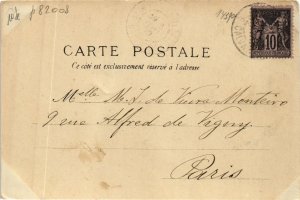 p82008
CARTE POSTALE
Ce côté est exclusivement réservé à l'adresse
Melle M. J. de Vieira Monteiro
9 rue Alfred de Vigny
Paris
10